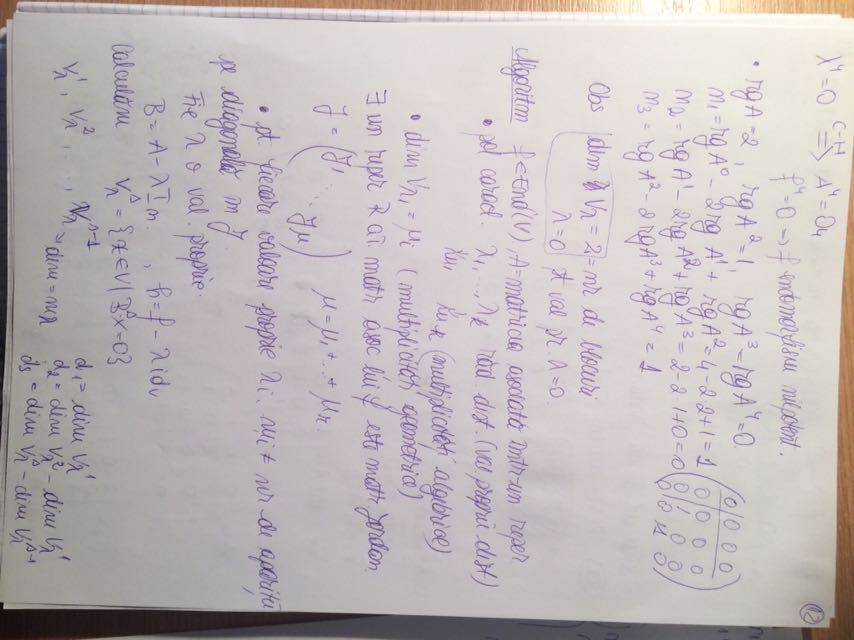 12
λ⁴ = 0 C-H ⟹ A⁴ = O₄
f⁴ = 0 ⟹ f endomorfism nilpotent.
• rg A = 2, rg A² = 1, rg A³ = rg A⁴ = 0
m₁ = rg A⁰ - 2 rg A¹ + rg A² = 4 - 2·2 + 1 = 1
m₂ = rg A¹ - 2 rg A² + rg A³ = 2 - 2·1 + 0 = 0
m₃ = rg A² - 2 rg A³ + rg A⁴ = 1
0 0 0 0
0 0 0 0
0 1 0 0
0 0 1 0
Obs dim V_λ = 2 = nr de blocuri
λ = 0 pt val pr. λ = 0.
Algoritm f ∈ End(V), A = matricea asociată într-un reper
• pol caract. λ₁, ..., λ_k răd. dist. (val proprii dist)
m₁, m_k (multiplicități algebrice)
• dim V_λi = μ_i (multiplicități geometrice)
∃ un reper R aî matr. asoc lui f este matr Jordan
J = (J₁ ⋱ J_μ) μ = μ₁ + ... + μ_k.
• pt. fiecare valoare proprie λ_i, m_i = nr de apariții
pe diagonala în J.
Fie λ o val. proprie.
B = A - λ I_n, h = f - λ id_V
Calculăm V_λ^s = {x ∈ V | B^s X = 0}
V_λ¹, V_λ², ..., V_λ^{s-1} = dim = m_λ
d₁ = dim V_λ¹
d₂ = dim V_λ² - dim V_λ¹
d_s = dim V_λ^s - dim V_λ^{s-1}